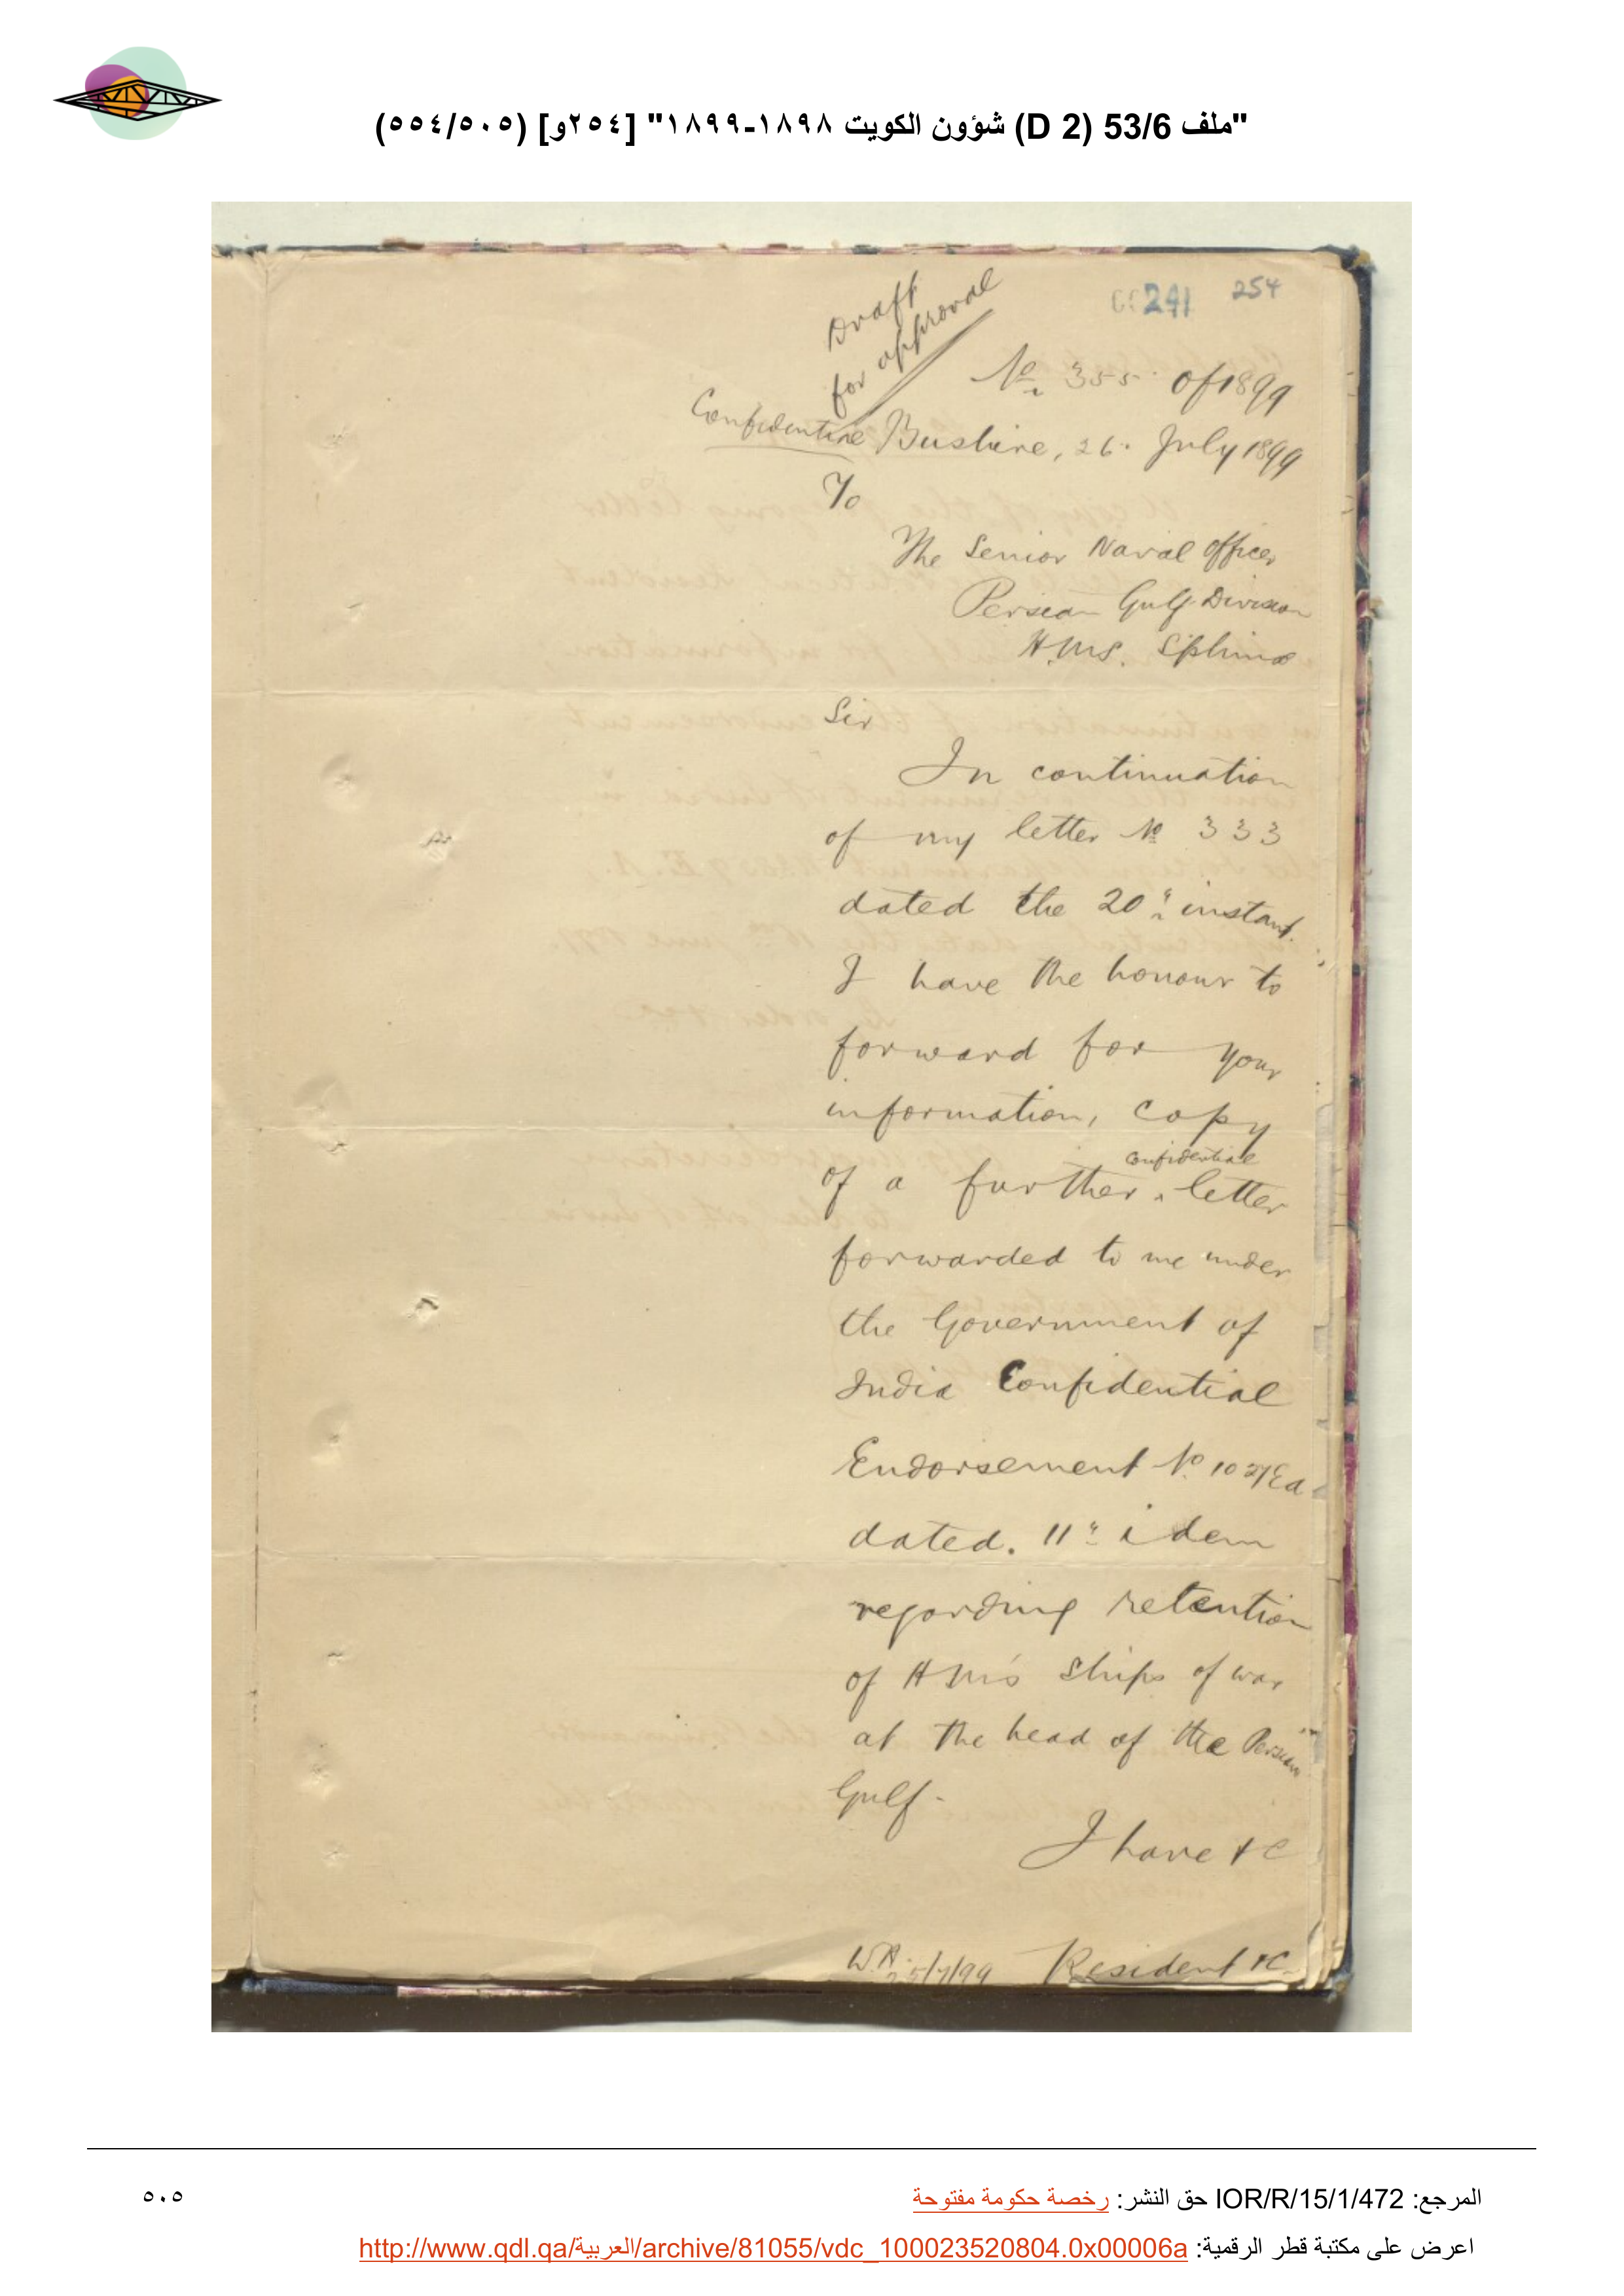 "ملف 53/6 (D 2) شؤون الكويت ١٨٩٨-١٨٩٩" [٢٥٤و] (٥٠٥/٥٥٤)
241 254
Draft
for approval
No. 355 of 1899
Confidential Bushire, 26. July 1899
To
The Senior Naval Officer
Persian Gulf Division
H.M.S. Sphinx
Sir
In continuation
of my letter No 333
dated the 20th instant.
I have the honour to
forward for your
information, copy
confidential
of a further letter
forwarded to me under
the Government of
India Confidential
Endorsement No.
dated. 11th idem
regarding retention
of HM's Ships of war
at the head of the Persian
Gulf.
I have &c
25/7/99 Resident &c.
المرجع: IOR/R/15/1/472 حق النشر: رخصة حكومة مفتوحة
٥٠٥
اعرض على مكتبة قطر الرقمية: http://www.qdl.qa/العربية/archive/81055/vdc_100023520804.0x00006a